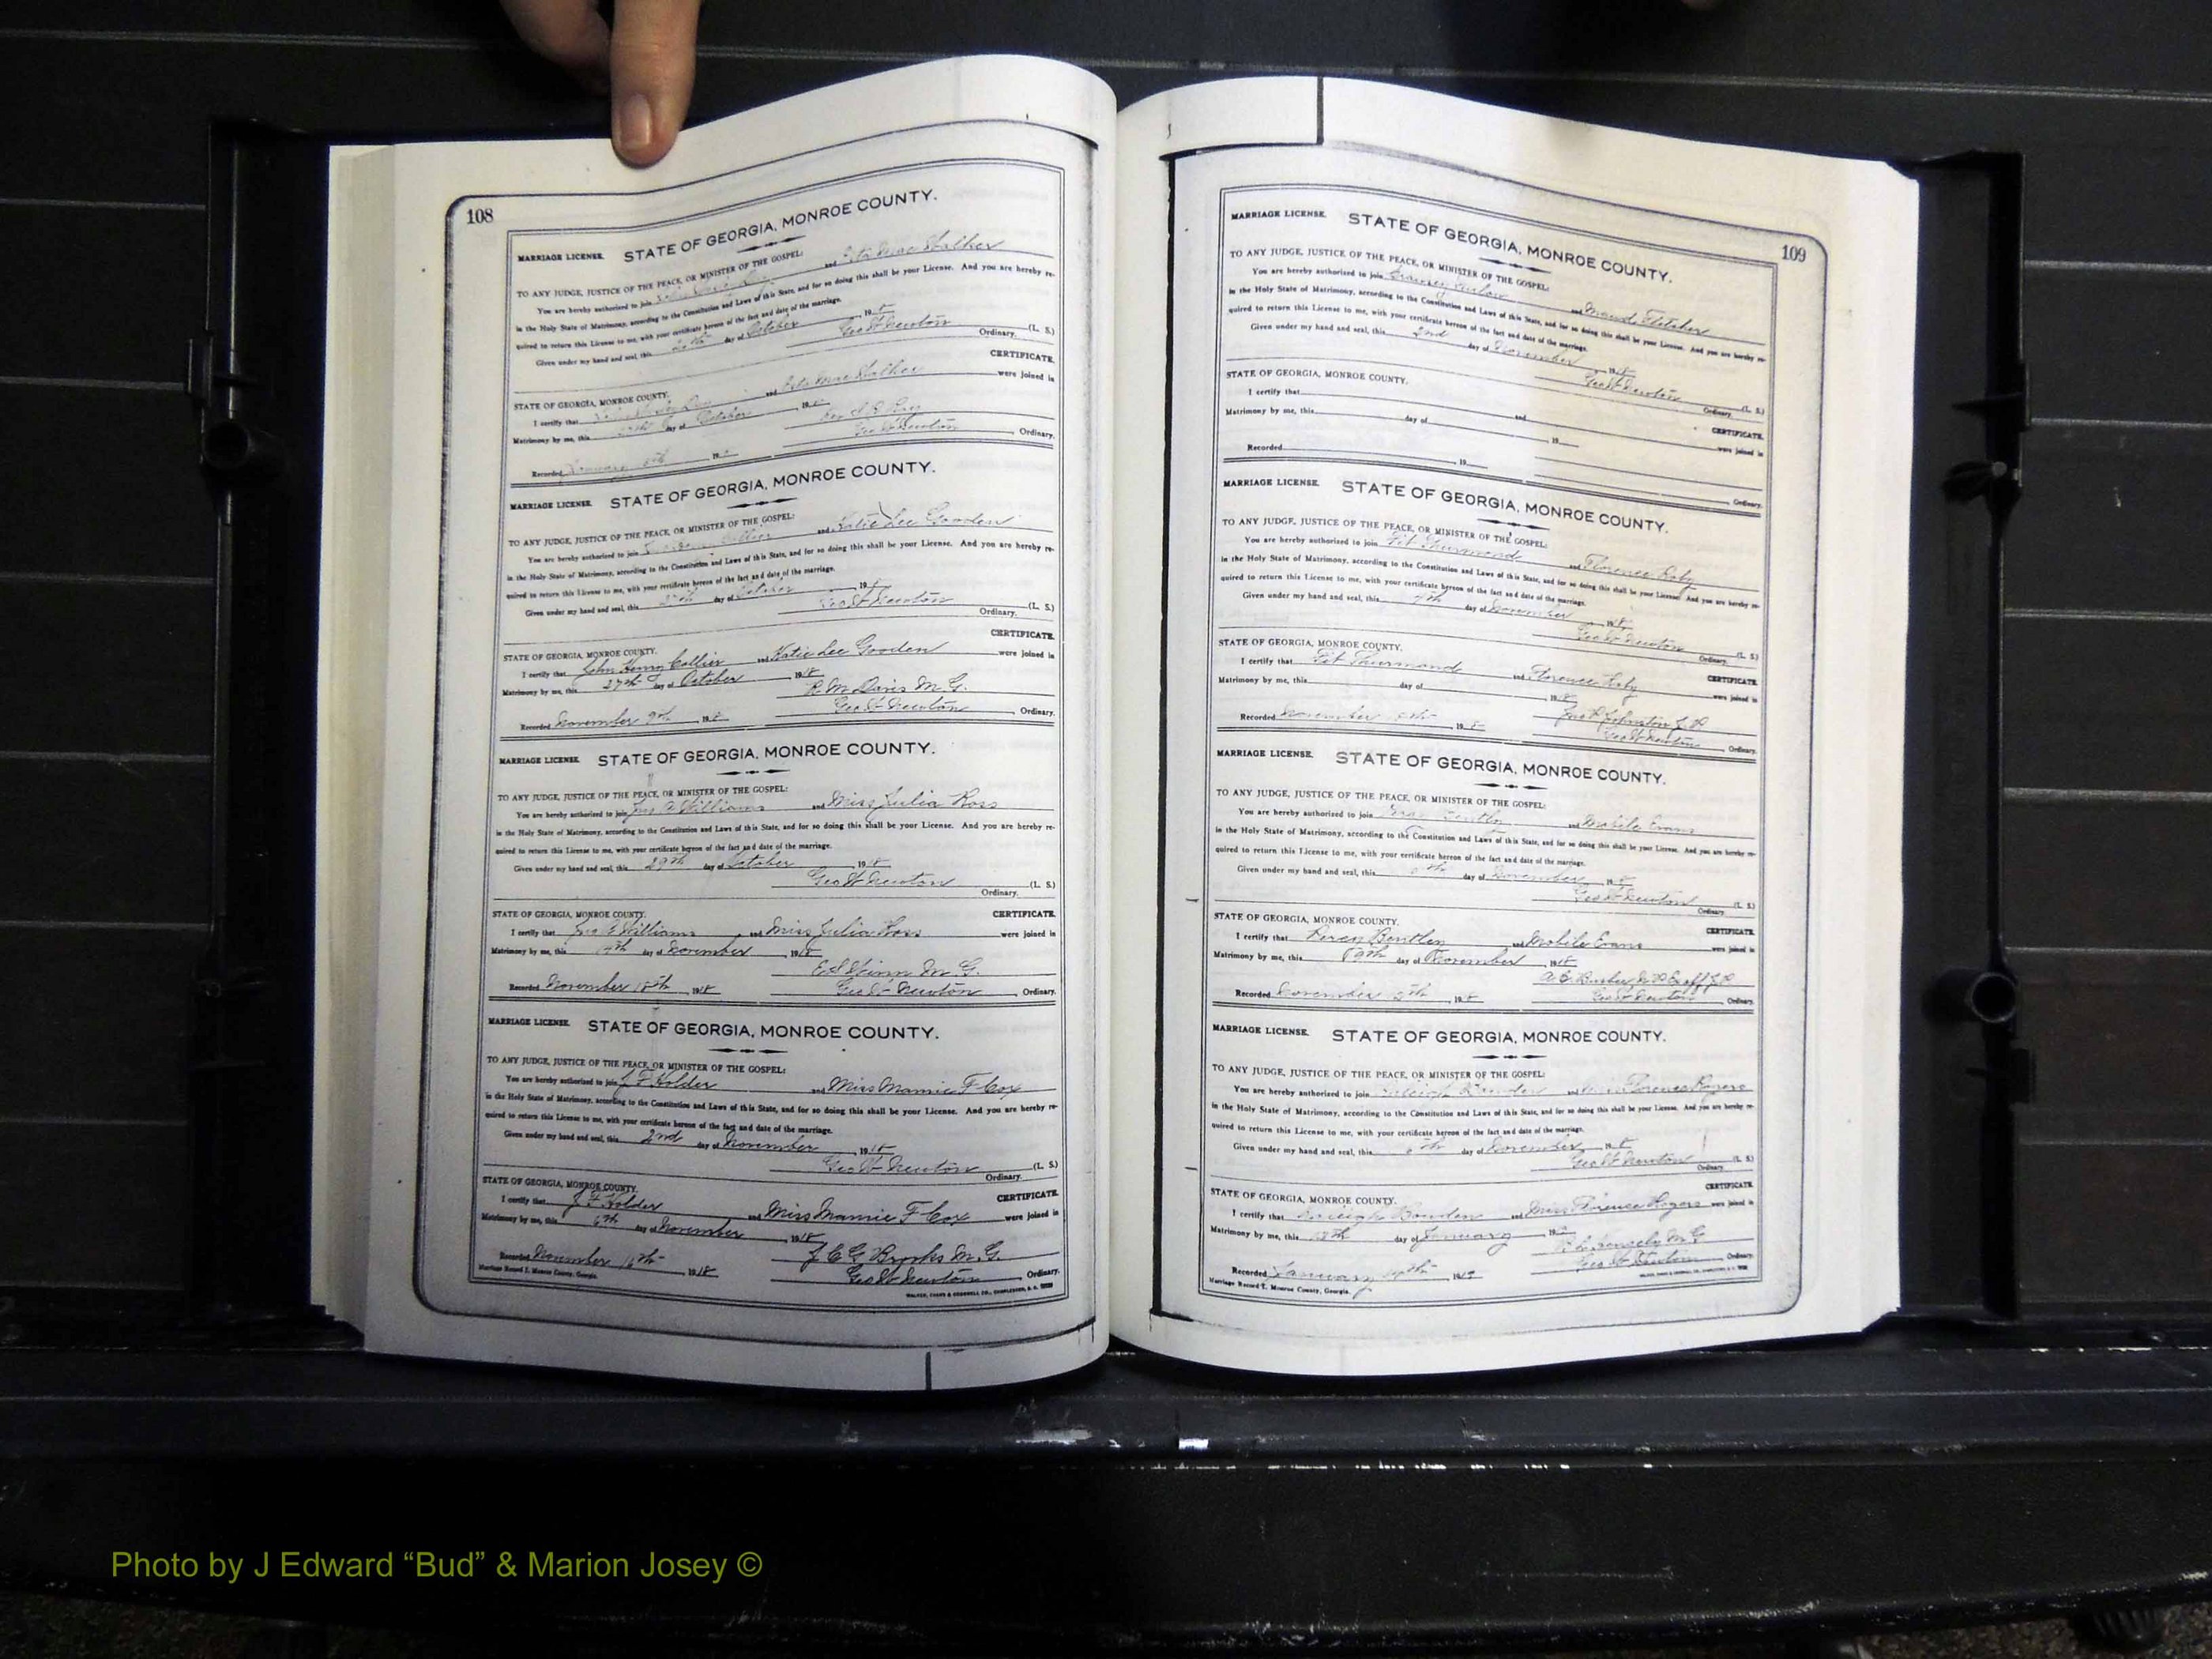 108
MARRIAGE LICENSE. STATE OF GEORGIA, MONROE COUNTY.
TO ANY JUDGE, JUSTICE OF THE PEACE, OR MINISTER OF THE GOSPEL:
You are hereby authorized to join and Mae Stalker
in the Holy State of Matrimony, according to the Constitution and Laws of this State, and for so doing this shall be your License. And you are hereby re-
quired to return this License to me, with your certificate hereon of the fact and date of the marriage.
Given under my hand and seal, this day of October 191
Geo W Newton (L. S.)
Ordinary.
STATE OF GEORGIA, MONROE COUNTY. CERTIFICATE.
I certify that and Mae Stalker were joined in
Matrimony by me, this day of October 191
Recorded January 191 Geo W Newton Ordinary.
MARRIAGE LICENSE. STATE OF GEORGIA, MONROE COUNTY.
TO ANY JUDGE, JUSTICE OF THE PEACE, OR MINISTER OF THE GOSPEL:
You are hereby authorized to join Collier and Katie Lee Gooden
in the Holy State of Matrimony, according to the Constitution and Laws of this State, and for so doing this shall be your License. And you are hereby re-
quired to return this License to me, with your certificate hereon of the fact and date of the marriage.
Given under my hand and seal, this day of October 191
Geo W Newton (L. S.)
Ordinary.
STATE OF GEORGIA, MONROE COUNTY. CERTIFICATE.
I certify that John Henry Collier and Katie Lee Gooden were joined in
Matrimony by me, this 27th day of October 1918
R. M. Davis M. G.
Recorded November 9th 1918 Geo W Newton Ordinary.
MARRIAGE LICENSE. STATE OF GEORGIA, MONROE COUNTY.
TO ANY JUDGE, JUSTICE OF THE PEACE, OR MINISTER OF THE GOSPEL:
You are hereby authorized to join Jno A Williams and Miss Julia Ross
in the Holy State of Matrimony, according to the Constitution and Laws of this State, and for so doing this shall be your License. And you are hereby re-
quired to return this License to me, with your certificate hereon of the fact and date of the marriage.
Given under my hand and seal, this 29th day of October 1918
Geo W Newton (L. S.)
Ordinary.
STATE OF GEORGIA, MONROE COUNTY. CERTIFICATE.
I certify that Jno A Williams and Miss Julia Ross were joined in
Matrimony by me, this day of November 1918
M. G.
Recorded November 18th 1918 Geo W Newton Ordinary.
MARRIAGE LICENSE. STATE OF GEORGIA, MONROE COUNTY.
TO ANY JUDGE, JUSTICE OF THE PEACE, OR MINISTER OF THE GOSPEL:
You are hereby authorized to join J F Holder and Miss Mamie F Cox
in the Holy State of Matrimony, according to the Constitution and Laws of this State, and for so doing this shall be your License. And you are hereby re-
quired to return this License to me, with your certificate hereon of the fact and date of the marriage.
Given under my hand and seal, this 2nd day of November 1918
Geo W Newton (L. S.)
Ordinary.
STATE OF GEORGIA, MONROE COUNTY. CERTIFICATE.
I certify that J F Holder and Miss Mamie F Cox were joined in
Matrimony by me, this 6th day of November 1918
J C G Brooks M. G.
Recorded November 16th 1918 Geo W Newton Ordinary.
Marriage Record I. Monroe County, Georgia.
109
MARRIAGE LICENSE. STATE OF GEORGIA, MONROE COUNTY.
TO ANY JUDGE, JUSTICE OF THE PEACE, OR MINISTER OF THE GOSPEL:
You are hereby authorized to join and Maude Fletcher
in the Holy State of Matrimony, according to the Constitution and Laws of this State, and for so doing this shall be your License. And you are hereby re-
quired to return this License to me, with your certificate hereon of the fact and date of the marriage.
Given under my hand and seal, this 2nd day of November 1918
Geo W Newton (L. S.)
Ordinary.
STATE OF GEORGIA, MONROE COUNTY. CERTIFICATE.
I certify that and were joined in
Matrimony by me, this day of 19
Recorded 19 Ordinary.
MARRIAGE LICENSE. STATE OF GEORGIA, MONROE COUNTY.
TO ANY JUDGE, JUSTICE OF THE PEACE, OR MINISTER OF THE GOSPEL:
You are hereby authorized to join Thurmond and Florence Roby
in the Holy State of Matrimony, according to the Constitution and Laws of this State, and for so doing this shall be your License. And you are hereby re-
quired to return this License to me, with your certificate hereon of the fact and date of the marriage.
Given under my hand and seal, this 7th day of November 1918
Geo W Newton (L. S.)
Ordinary.
STATE OF GEORGIA, MONROE COUNTY. CERTIFICATE.
I certify that Thurmond and Florence Roby were joined in
Matrimony by me, this day of 191
Johnston J. P.
Recorded November 1918 Geo W Newton Ordinary.
MARRIAGE LICENSE. STATE OF GEORGIA, MONROE COUNTY.
TO ANY JUDGE, JUSTICE OF THE PEACE, OR MINISTER OF THE GOSPEL:
You are hereby authorized to join and Mobile Evans
in the Holy State of Matrimony, according to the Constitution and Laws of this State, and for so doing this shall be your License. And you are hereby re-
quired to return this License to me, with your certificate hereon of the fact and date of the marriage.
Given under my hand and seal, this day of November 1918
Geo W Newton (L. S.)
Ordinary.
STATE OF GEORGIA, MONROE COUNTY. CERTIFICATE.
I certify that Percy Bentley and Mobile Evans were joined in
Matrimony by me, this day of November 1918
Recorded November 1918 Geo W Newton Ordinary.
MARRIAGE LICENSE. STATE OF GEORGIA, MONROE COUNTY.
TO ANY JUDGE, JUSTICE OF THE PEACE, OR MINISTER OF THE GOSPEL:
You are hereby authorized to join Raleigh Bowden and Miss Florence Rogers
in the Holy State of Matrimony, according to the Constitution and Laws of this State, and for so doing this shall be your License. And you are hereby re-
quired to return this License to me, with your certificate hereon of the fact and date of the marriage.
Given under my hand and seal, this day of November 1918
Geo W Newton (L. S.)
Ordinary.
STATE OF GEORGIA, MONROE COUNTY. CERTIFICATE.
I certify that Raleigh Bowden and Miss Florence Rogers were joined in
Matrimony by me, this day of January 191
M. G.
Recorded January 1919 Geo W Newton Ordinary.
Marriage Record I. Monroe County, Georgia.
Photo by J Edward “Bud” & Marion Josey ©